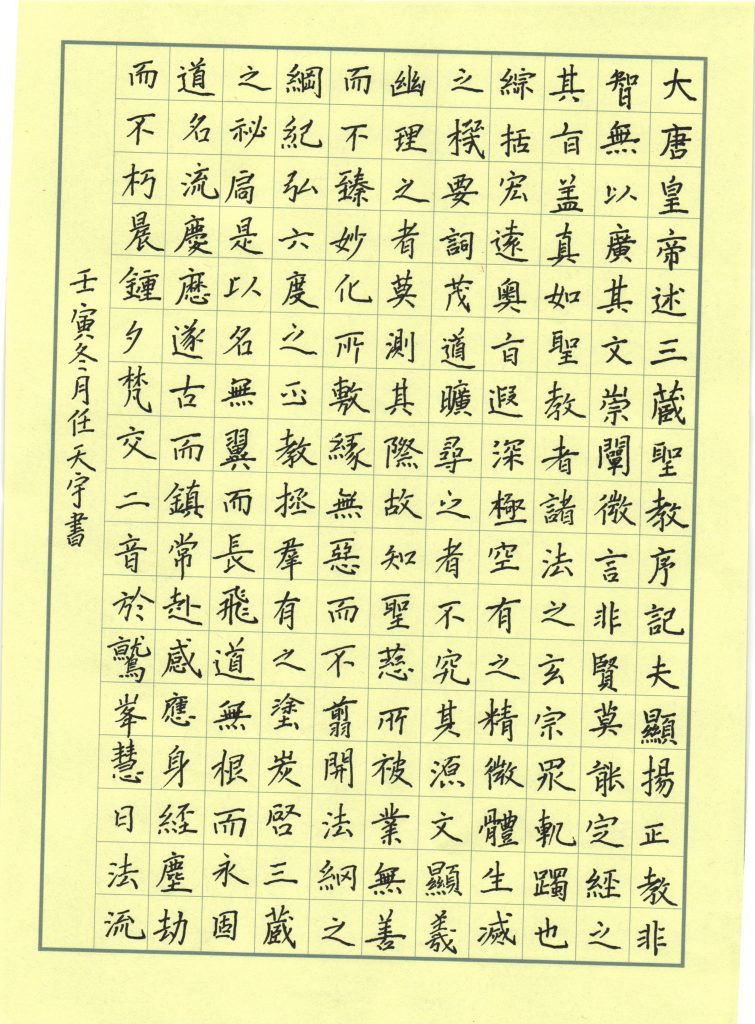 大唐皇帝述三藏聖教序記夫顯揚正教非
智無以廣其文崇闡微言非賢莫能定經之
其旨盖真如聖教者諸法之玄宗眾軌躅也
綜括宏遠奧旨遐深極空有之精微體生滅
之機要詞茂道曠尋之者不究其源文顯義
幽理之者莫測其際故知聖慈所被業無善
而不臻妙化所敷緣無惡而不翦開法網之
綱紀弘六度之正教拯羣有之塗炭啓三藏
之祕扃是以名無翼而長飛道無根而永固
道名流慶歷遂古而鎮常赴感應身經塵劫
而不朽晨鍾夕梵交二音於鷲峯慧日法流
壬寅冬月任天宇書